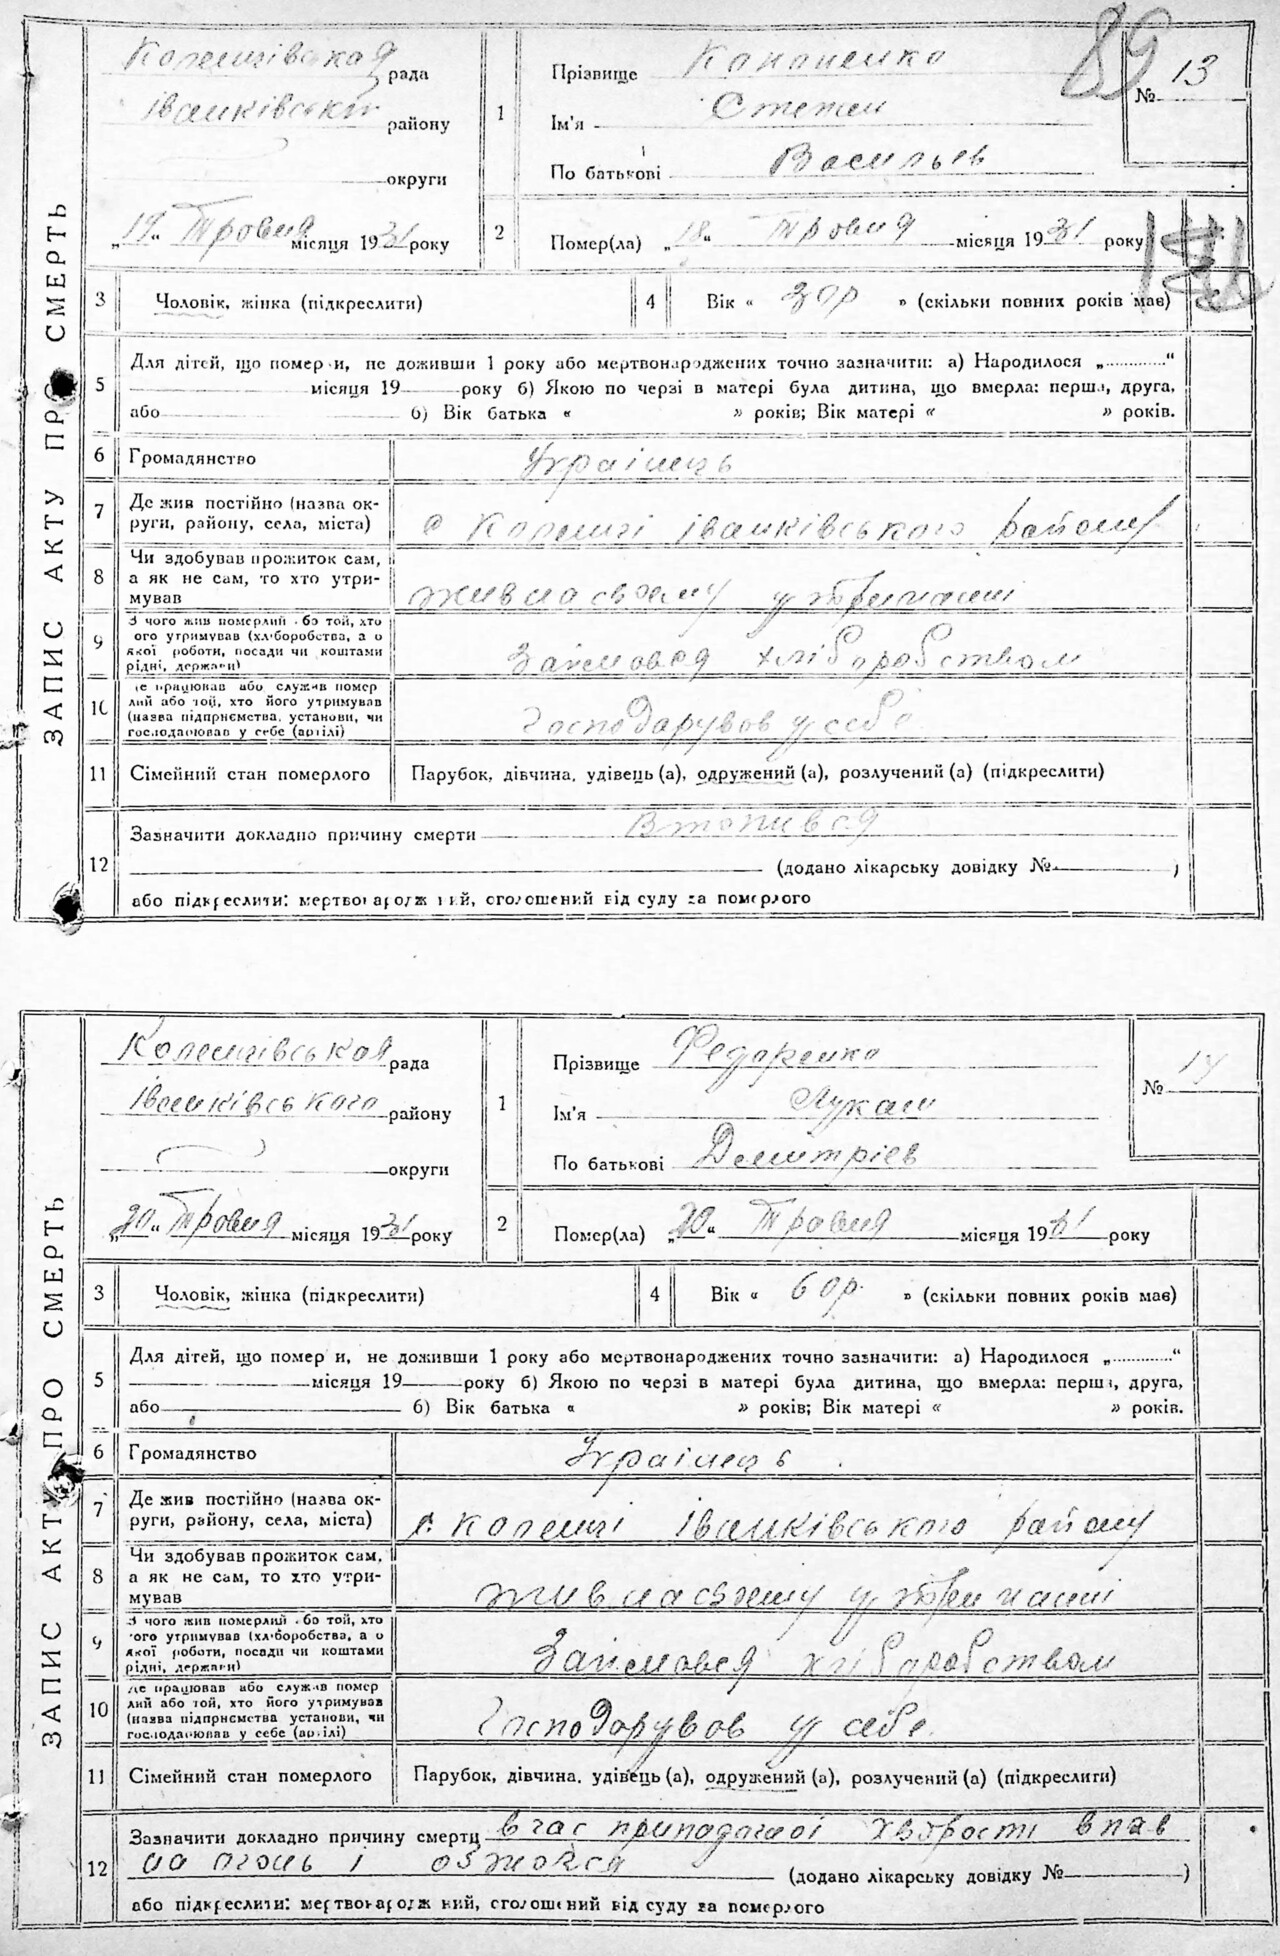 ЗАПИС АКТУ ПРО СМЕРТЬ
Коленцівская рада
Іванківський району
округи
„19“ Тровня місяця 1931 року
1
Прізвище Кононенко
Ім'я Степан
По батькові Васильев
89
№ 13
2
Помер(ла) „18“ Тровня місяця 1931 року
3
Чоловік, жінка (підкреслити)
4
Вік « 30 р » (скільки повних років має)
5
Для дітей, що померли, не доживши 1 року або мертвонароджених точно зазначити: а) Народилося „............“
місяця 19 року б) Якою по черзі в матері була дитина, що вмерла: перша, друга,
або б) Вік батька « » років; Вік матері « » років.
6
Громадянство Украінець
7
Де жив постійно (назва ок-
руги, району, села, міста) с Коленці іванківського району
8
Чи здобував прожиток сам,
а як не сам, то хто утри-
мував жив на своему утриманні
9
З чого жив померлий або той, хто
його утримував (хліборобства, а о
якої роботи, посади чи коштами
рідні, держави) Займовся хліборобством
10
Де працював або служив помер
лий або той, хто його утримував
(назва підприємства, установи, чи
господарював у себе (артілі) Господарував у себе
11
Сімейний стан померлого Парубок, дівчина, удівець (а), одружений (а), розлучений (а) (підкреслити)
12
Зазначити докладно причину смерти Втопився
(додано лікарську довідку № )
або підкреслити: мертвонароджений, оголошений від суду за померлого
ЗАПИС АКТУ ПРО СМЕРТЬ
Коленцівськая рада
Іванківського району
округи
„20“ Тровня місяця 1931 року
1
Прізвище Федоренко
Ім'я Лукаш
По батькові Дмитріев
№ 14
2
Помер(ла) „20“ Тровня місяця 1931 року
3
Чоловік, жінка (підкреслити)
4
Вік « 60 р. » (скільки повних років має)
5
Для дітей, що померли, не доживши 1 року або мертвонароджених точно зазначити: а) Народилося „............“
місяця 19 року б) Якою по черзі в матері була дитина, що вмерла: перша, друга,
або б) Вік батька « » років; Вік матері « » років.
6
Громадянство Украінець
7
Де жив постійно (назва ок-
руги, району, села, міста) с. Коленці іванківського району
8
Чи здобував прожиток сам,
а як не сам, то хто утри-
мував жив на своему утриманні
9
З чого жив померлий або той, хто
його утримував (хліборобства, а о
якої роботи, посади чи коштами
рідні, держави) Займовся хліборобством
10
Де працював або служив помер
лий або той, хто його утримував
(назва підприємства установи, чи
господарював у себе (артілі) Господорував у себе.
11
Сімейний стан померлого Парубок, дівчина, удівець (а), одружений (а), розлучений (а) (підкреслити)
12
Зазначити докладно причину смерти в час припадачної хворости впав
на огонь і обжогся
(додано лікарську довідку № )
або підкреслити: мертвонароджений, оголошений від суду за померлого